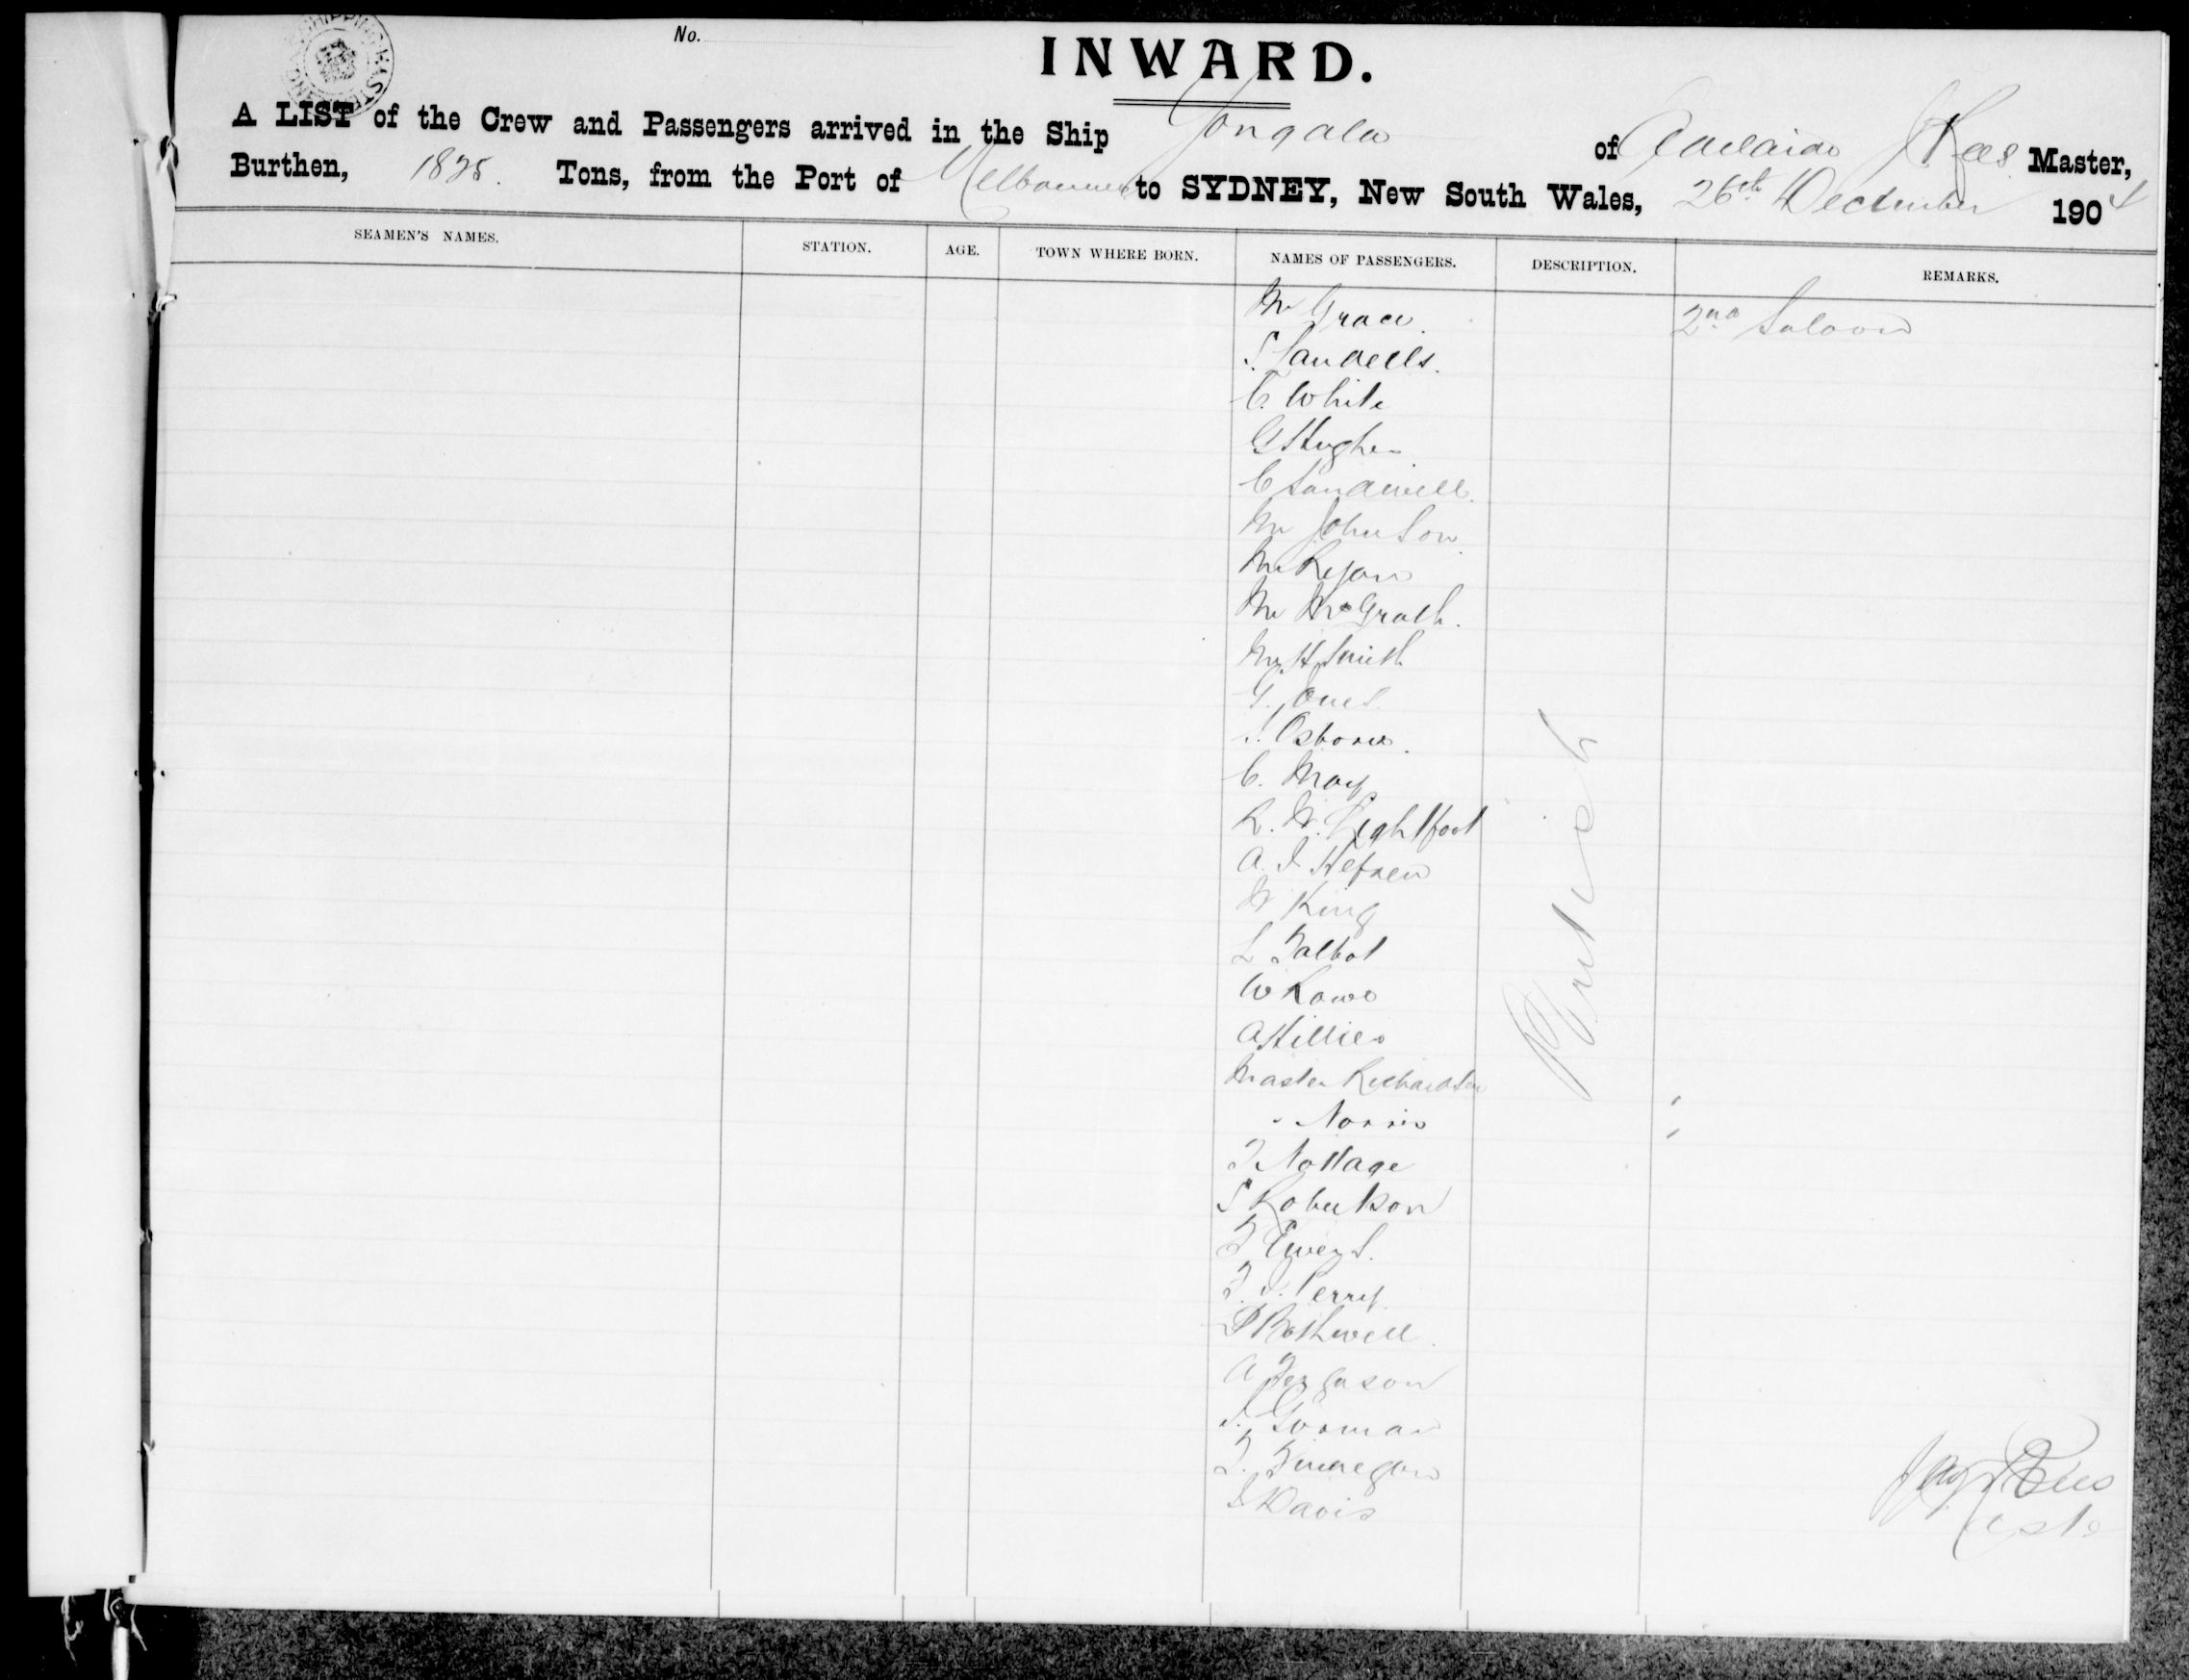 No.
INWARD.
A LIST of the Crew and Passengers arrived in the Ship Yongala of Adelaide J Rees Master,
Burthen, 1825. Tons, from the Port of Melbourne to SYDNEY, New South Wales, 26th December 1904
SEAMEN'S NAMES. STATION. AGE. TOWN WHERE BORN. NAMES OF PASSENGERS. DESCRIPTION. REMARKS.
Mr Grace. 2nd Saloon
S. Landells.
C. White
G Hughes
C Sandwell.
Mr Johnson.
Mr Ryan
Mr McGrath.
Mr H Smith
G. Jones.
S. Osborne.
C. May
R. W. Lightfoot
A. I Hefren
W King
L Talbot
W Rowe
A Hillier
Master Richardson
" Norris
T Nottage
S Robertson
T Ewers.
T. J. Perry
P Bothwell.
A Ferguson
J. Gorman
T. Finnegan
J Davis
British
Rees